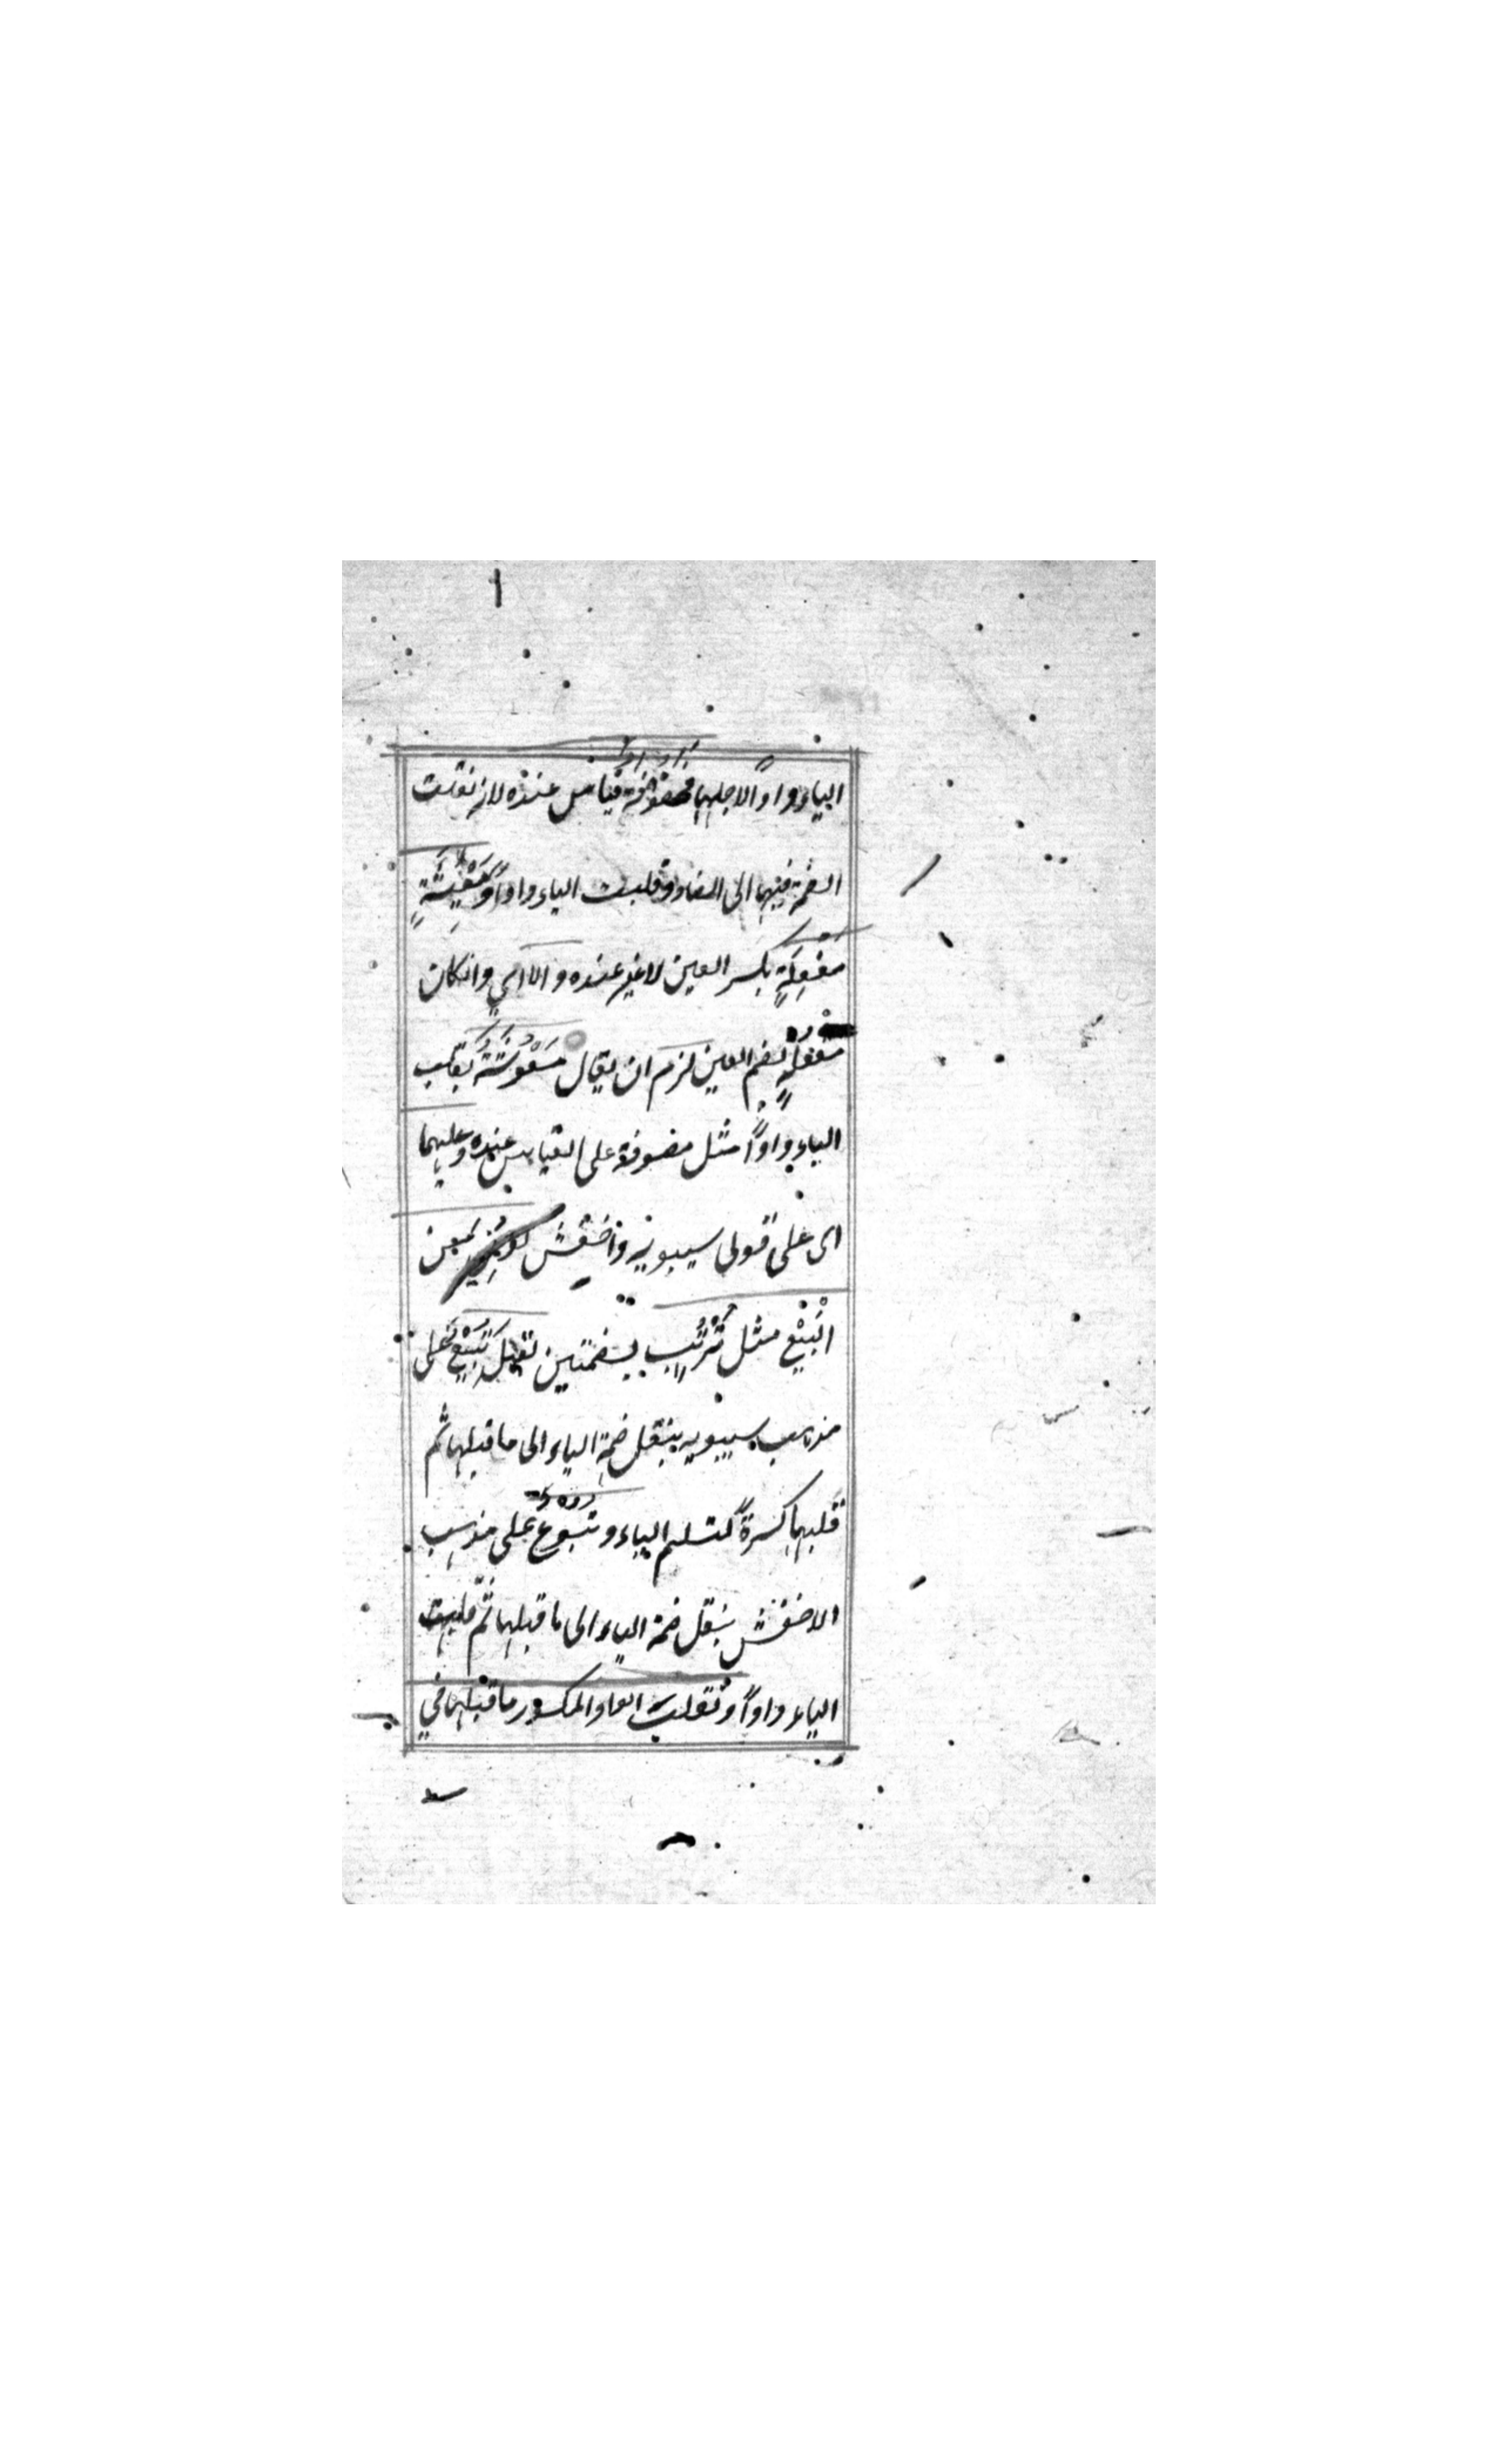 الياء واوًا لاجلها فمضوفة قياس عنده لانه نقلت
الضمة فيها الى الضاد وقلبت الياء واوًا ومَعِيْشَةٍ
مفعِلَةٍ بكسر العين لاغير عنده والا اى وانكان
مفعُلةٍ بضم العين لزم ان يقال مَعُوْشَةٌ بقلب
الياء واوًا مثل مضوفة على القياس عنده وعليهما
اى على قولى سيبويه واخفش لو بُنِىَ من
البَيْع مثل تُرْتُبٍ بضمتين لقيل تُبِيْعٌ على
مذهب سيبويه بنقل ضمة الياء الى ما قبلها ثم
قلبها كسرةً لتسلم الياء وتبوع على مذهب
الاخفش بنقل ضمة الياء الى ما قبلها ثم قلبت
الياء واوًا وتقلب الواو المكسور ما قبلها في